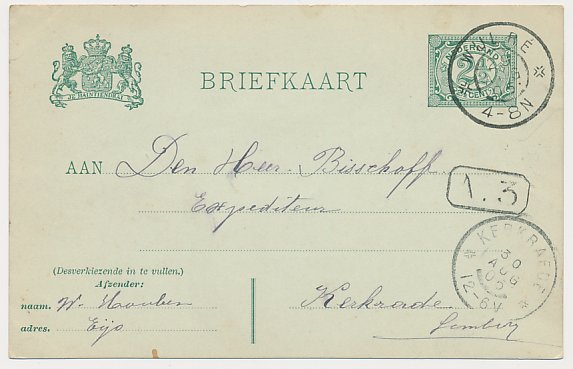 JE MAINTIENDRAI
BRIEFKAART
NEDERLAND
2½
WIJLRE
4-8N
AAN Den Heer Bisschoff
Expediteur
1.3
KERKRADE
30
AUG
05
12-6N
(Desverkiezende in te vullen.)
Afzender:
naam. W. Houben
adres. Eijs
Kerkrade
Limburg